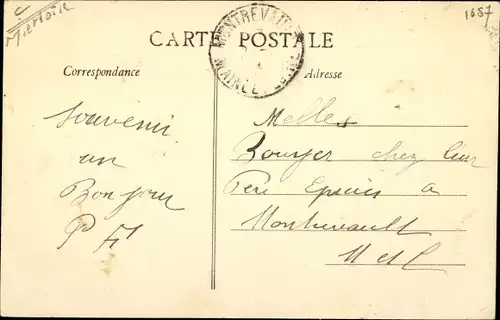 1657
CARTE POSTALE
MONTREVAULT
MAINE-ET-LOIRE
Correspondance
Adresse
Souvenir
un
Bonjour
Melles
chez leur
Père Epicier a
Montrevault
M et L